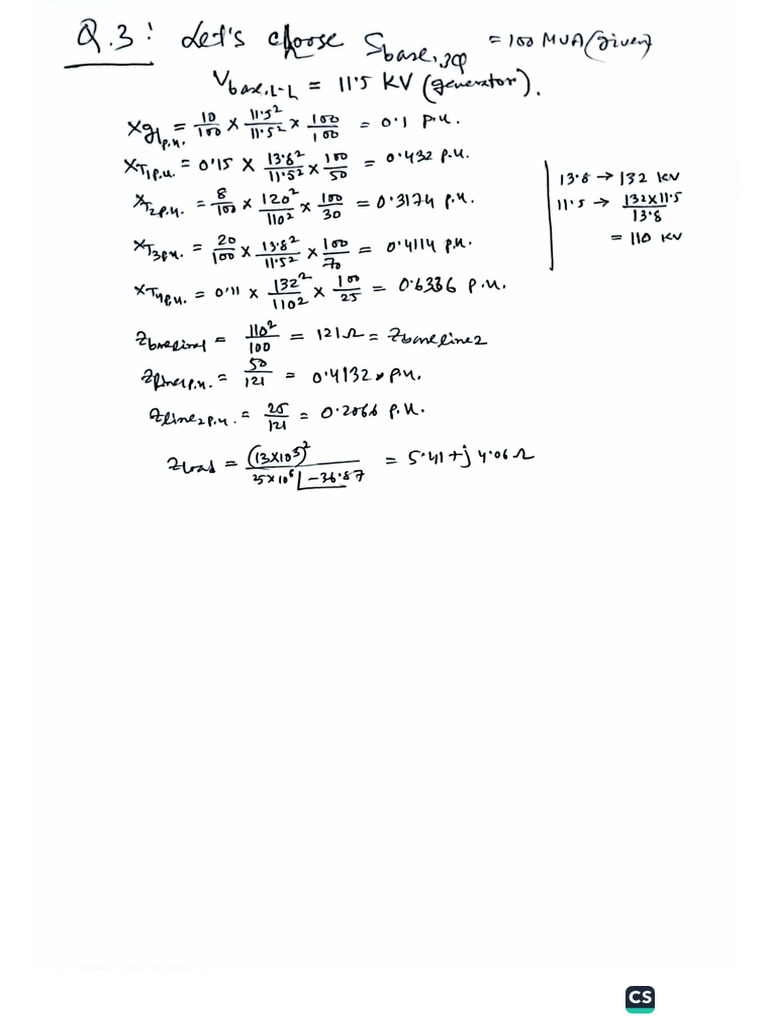 Q.3: Let's choose Sbase,3φ = 100 MVA (given)
Vbase,L-L = 11.5 KV (generator).
Xg1p.u. = 10/100 × 11.5²/11.5² × 100/100 = 0.1 P.u.
XT1p.u. = 0.15 × 13.8²/11.5² × 100/50 = 0.432 P.u.
XT2p.u. = 8/100 × 120²/110² × 100/30 = 0.3174 p.u.
XT3p.u. = 20/100 × 13.8²/11.5² × 100/70 = 0.4114 p.u.
XT4p.u. = 0.11 × 132²/110² × 100/25 = 0.6336 p.u.
13.8 → 132 kV
11.5 → 132×11.5/13.8
= 110 KV
Zbaseline1 = 110²/100 = 121Ω = Zbaseline2
Zline1p.u. = 50/121 = 0.4132 p.u.
Zline2p.u. = 25/121 = 0.2066 p.u.
Zload = (13×10³)²/25×10⁶∠-36.87 = 5.41+j4.06Ω
CS